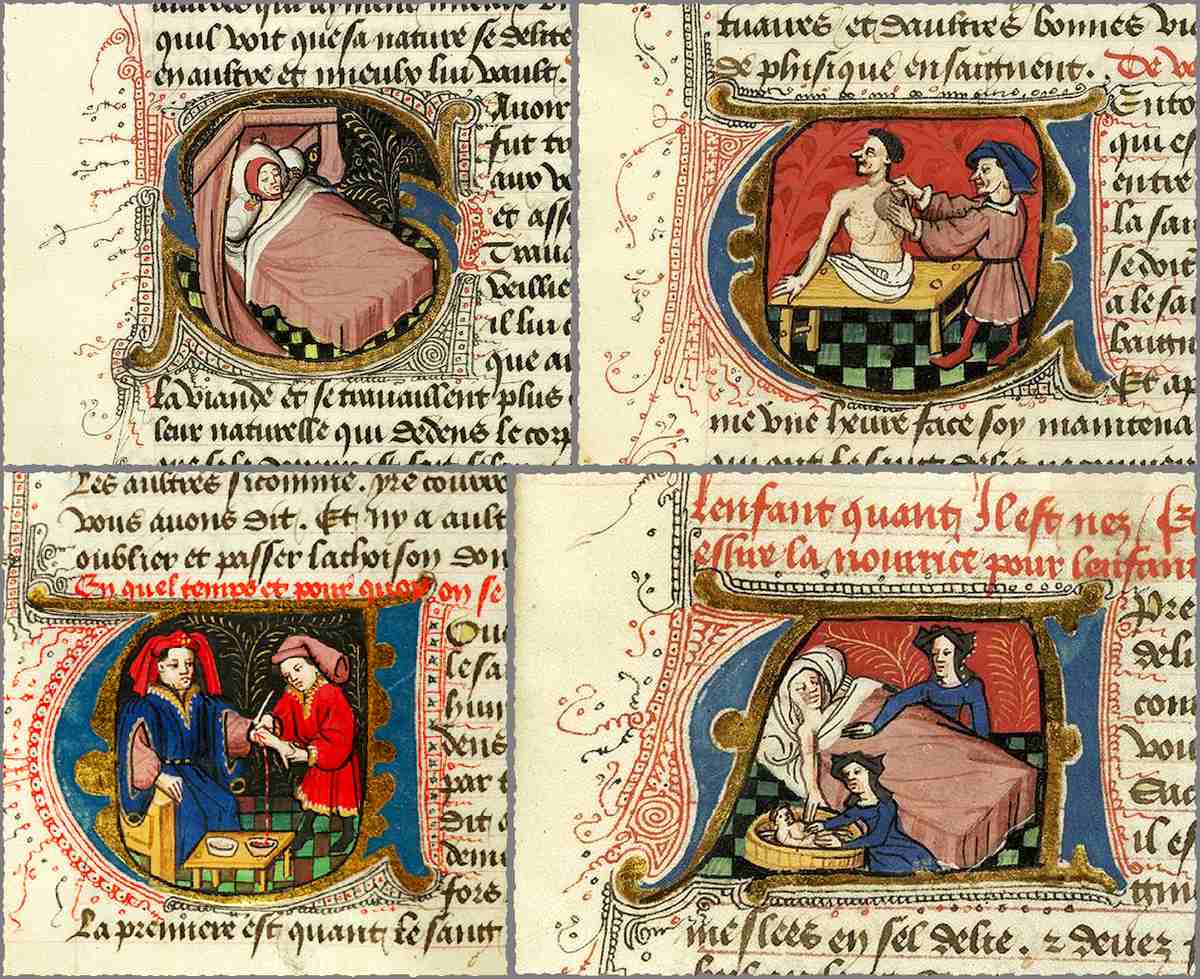 quil voit que sa nature se delite
en aultre et mieulx lui vault.
Auoir
fut
aux
et ass
Traua
veillie
il lui
que au
la viande et se trauaillent plus
leur naturelle qui dedens le corp
tuaires et daultres bonnes
de phisique ensaignent. De
Ento
qui es
entre
la sai
se doit
a le sai
baign
Et ap
me vne heure face soy maintena
Les aultres sicomme. yre courre
vous auons dit. Et ny a ault
oublier et passer lachoison don
En quel temps et pour quoy on se
Que
le sa
hum
dens
par t
dit
deme
fors
La premiere est quant le sang
lenfant quant Il est nez
eslire la nourrice pour lenfant
pre
deli
com
vou
Sac
il es
meslees en sel delie. 2 deuez